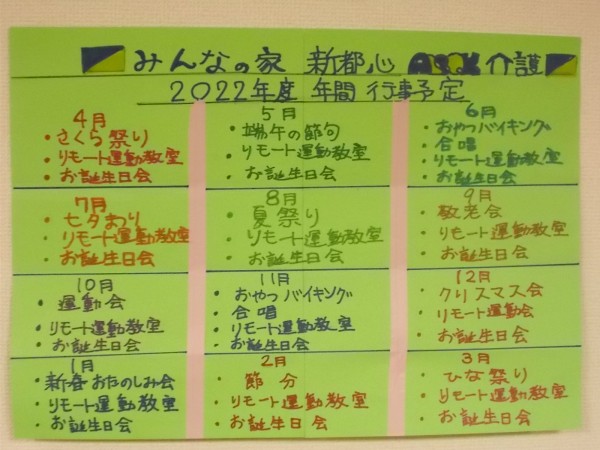 みんなの家 新都心 介護
2022年度 年間行事予定
4月
・さくら祭り
・リモート運動教室
・お誕生日会
5月
・端午の節句
・リモート運動教室
・お誕生日会
6月
・おやつバイキング
・合唱
・リモート運動教室
・お誕生日会
7月
・七夕まつり
・リモート運動教室
・お誕生日会
8月
・夏祭り
・リモート運動教室
・お誕生日会
9月
・敬老会
・リモート運動教室
・お誕生日会
10月
・運動会
・リモート運動教室
・お誕生日会
11月
・おやつバイキング
・合唱
・リモート運動教室
・お誕生日会
12月
・クリスマス会
・リモート運動会
・お誕生日会
1月
・新春おたのしみ会
・リモート運動教室
・お誕生日会
2月
・節分
・リモート運動教室
・お誕生日会
3月
・ひな祭り
・リモート運動教室
・お誕生日会